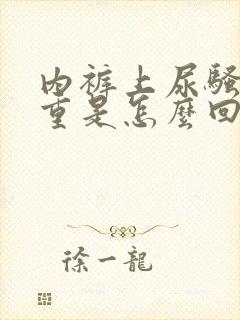 内裤上尿騷
重是怎麼回
徐一龍